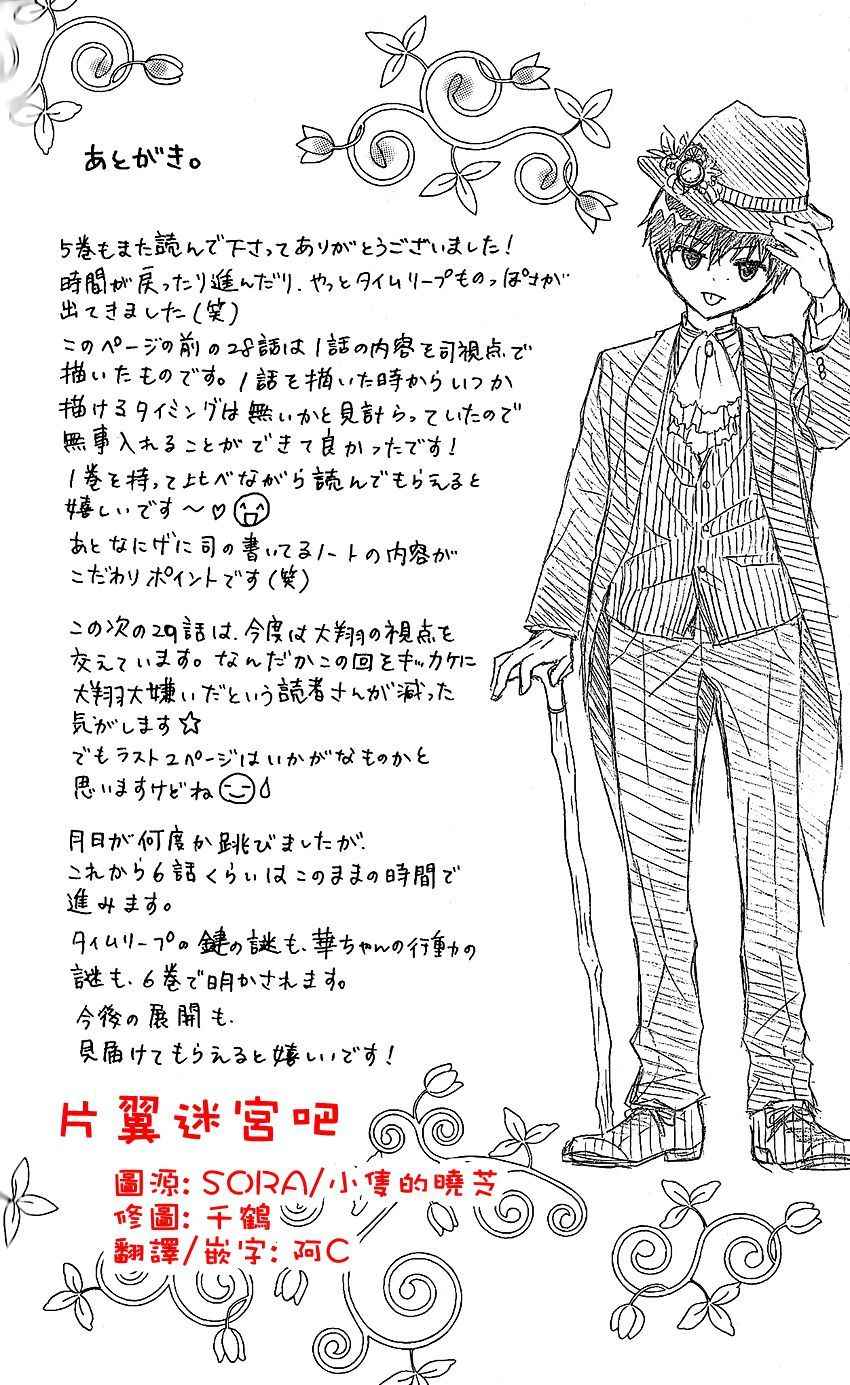 あとがき。
5巻もまた読んで下さってありがとうございました!
時間が戻ったり進んだり、やっとタイムリープものっぽさが
出てきました(笑)
このページの前の28話は1話の内容を司視点で
描いたものです。1話を描いた時からいつか
描けるタイミングは無いかと見計らっていたので
無事入れることができて良かったです!
1巻を持って比べながら読んでもらえると
嬉しいです〜♡
あとなにげに司の書いてるノートの内容が
こだわりポイントです(笑)
この次の29話は、今度は大翔の視点を
交えています。なんだかこの回をキッカケに
大翔大嫌いだという読者さんが減った
気がします☆
でもラスト2ページはいかがなものかと
思いますけどね
月日が何度か跳びましたが、
これから6話くらいはこのままの時間で
進みます。
タイムリープの鍵の謎も、華ちゃんの行動力の
謎も、6巻で明かされます。
今後の展開も、
見届けてもらえると嬉しいです!
片翼迷宮吧
圖源: SORA/小隻的曉芝
修圖: 千鶴
翻譯/嵌字: 阿C